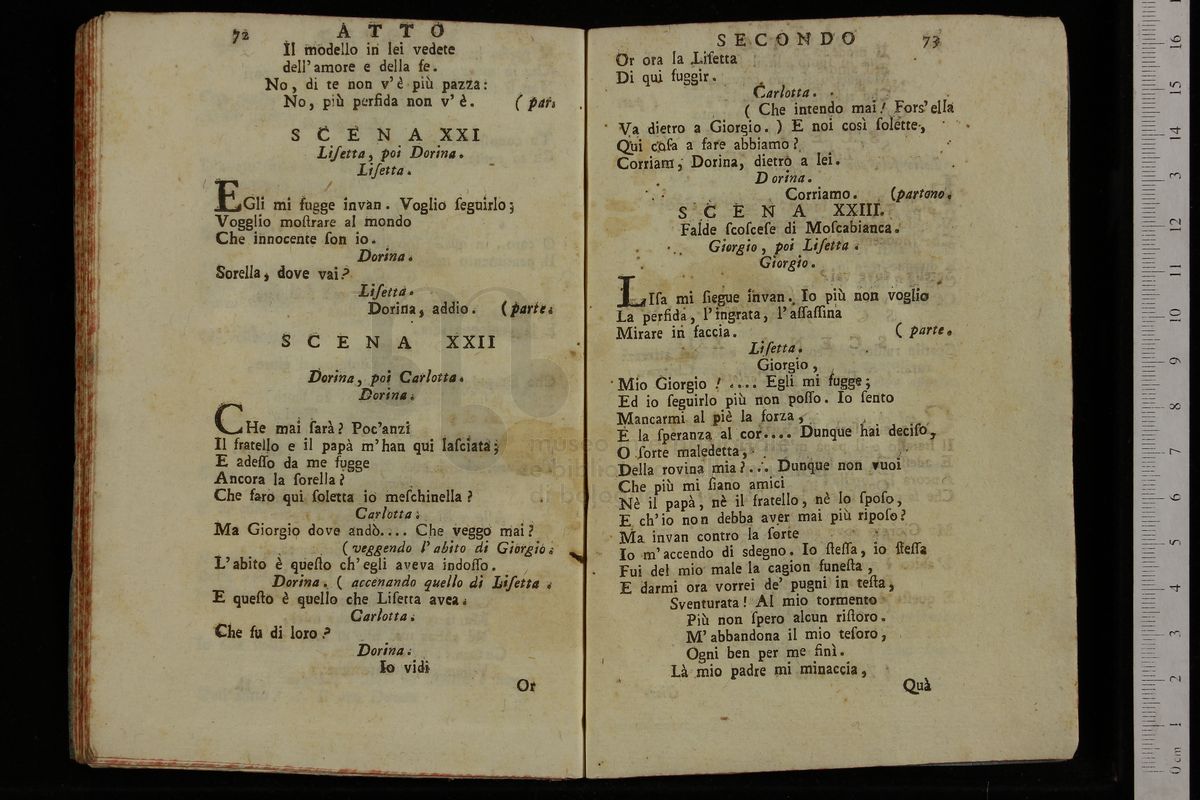 72 ATTO
Il modello in lei vedete
dell'amore e della fe.
No, di te non v'è più pazza:
No, più perfida non v'è. (par.
SCENA XXI
Liſetta, poi Dorina.
Liſetta.
EGli mi fugge invan. Voglio ſeguirlo;
Vogglio moſtrare al mondo
Che innocente ſon io.
Dorina.
Sorella, dove vai?
Liſetta.
Dorina, addio. (parte.
SCENA XXII
Dorina, poi Carlotta.
Dorina.
CHe mai ſarà? Poc'anzi
Il fratello e il papà m'han qui laſciata;
E adeſſo da me fugge
Ancora la ſorella?
Che faro qui ſoletta io meſchinella?
Carlotta.
Ma Giorgio dove andò.... Che veggo mai?
(veggendo l'abito di Giorgio.
L'abito è queſto ch'egli aveva indoſſo.
Dorina. ( accenando quello di Liſetta.
E queſto è quello che Liſetta avea.
Carlotta.
Che fu di loro?
Dorina.
Io vidi
Or
SECONDO 73
Or ora la Liſetta
Di qui fuggir.
Carlotta.
( Che intendo mai! Forſ'ella
Va dietro a Giorgio. ) E noi così ſolette,
Qui coſa a fare abbiamo?
Corriam, Dorina, dietro a lei.
Dorina.
Corriamo. (partono.
SCENA XXIII.
Falde ſcoſceſe di Moſcabianca.
Giorgio, poi Liſetta.
Giorgio.
LIſa mi ſiegue invan. Io più non voglio
La perfida, l'ingrata, l'aſſaſſina
Mirare in faccia. ( parte.
Liſetta.
Giorgio,
Mio Giorgio! .... Egli mi fugge;
Ed io ſeguirlo più non poſſo. Io ſento
Mancarmi al piè la forza,
E la ſperanza al cor.... Dunque hai deciſo,
O ſorte maledetta,
Della rovina mia?... Dunque non vuoi
Che più mi ſiano amici
Nè il papà, nè il fratello, nè lo ſpoſo,
E ch'io non debba aver mai più ripoſo?
Ma invan contro la ſorte
Io m'accendo di sdegno. Io ſteſſa, io ſteſſa
Fui del mio male la cagion funeſta,
E darmi ora vorrei de' pugni in teſta,
Sventurata! Al mio tormento
Più non ſpero alcun riſtoro.
M'abbandona il mio teſoro,
Ogni ben per me finì.
Là mio padre mi minaccia,
Quà